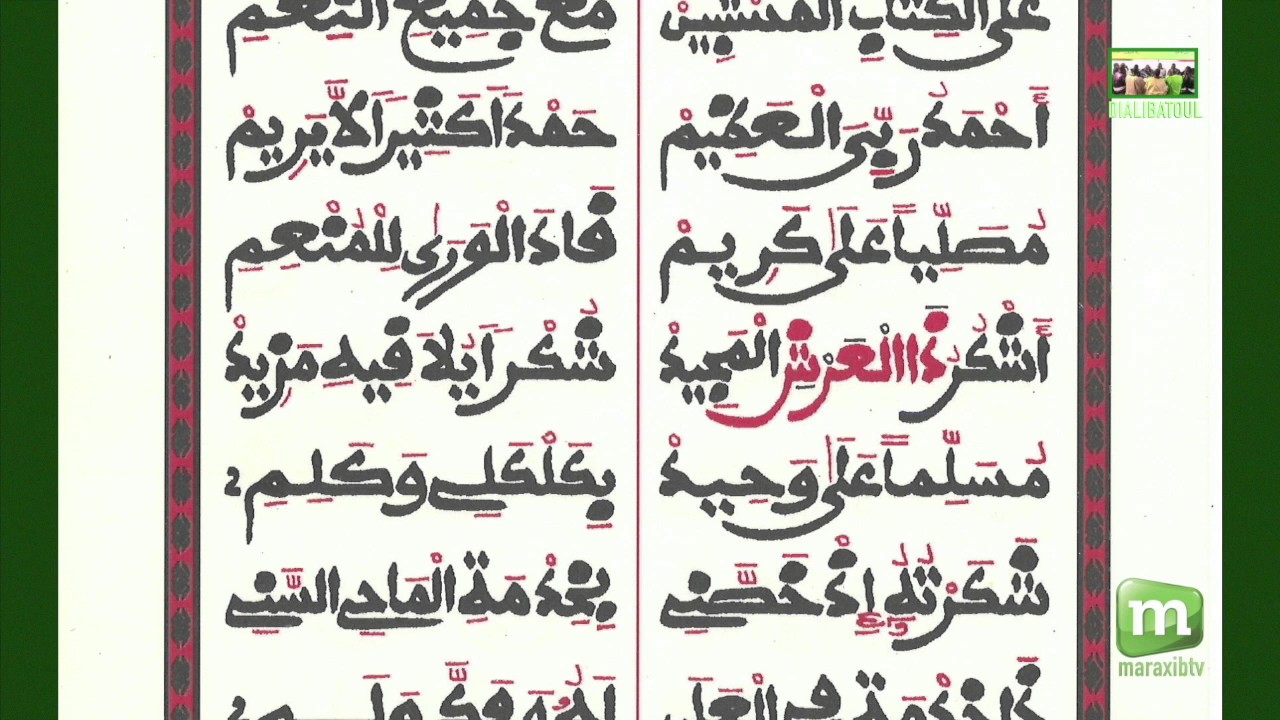 أَحْمَدُ رَبِّيَ الْعَظِيمْ حَمْدًا كَثِيرًا لَّا يَرِيمْ
مُصَلِّيًا عَلَى كَرِيمْ قَادَ الْوَرَى لِلْمُنْعِمِ
أَشْكُرُ ذَا الْعَرْشِ الْمَجِيدْ شُكْرًا يُلَافِيهِ مَزِيدْ
مُسَلِّمًا عَلَى وَحِيدْ بِكَلْكَلِي وَكَلِمِ
شَكَرْتُهُ إِذْ خَصَّنِي بِخِدْمَةِ الْمَاحِي السَّنِي
DIALIBATOUL
m
maraxibtv